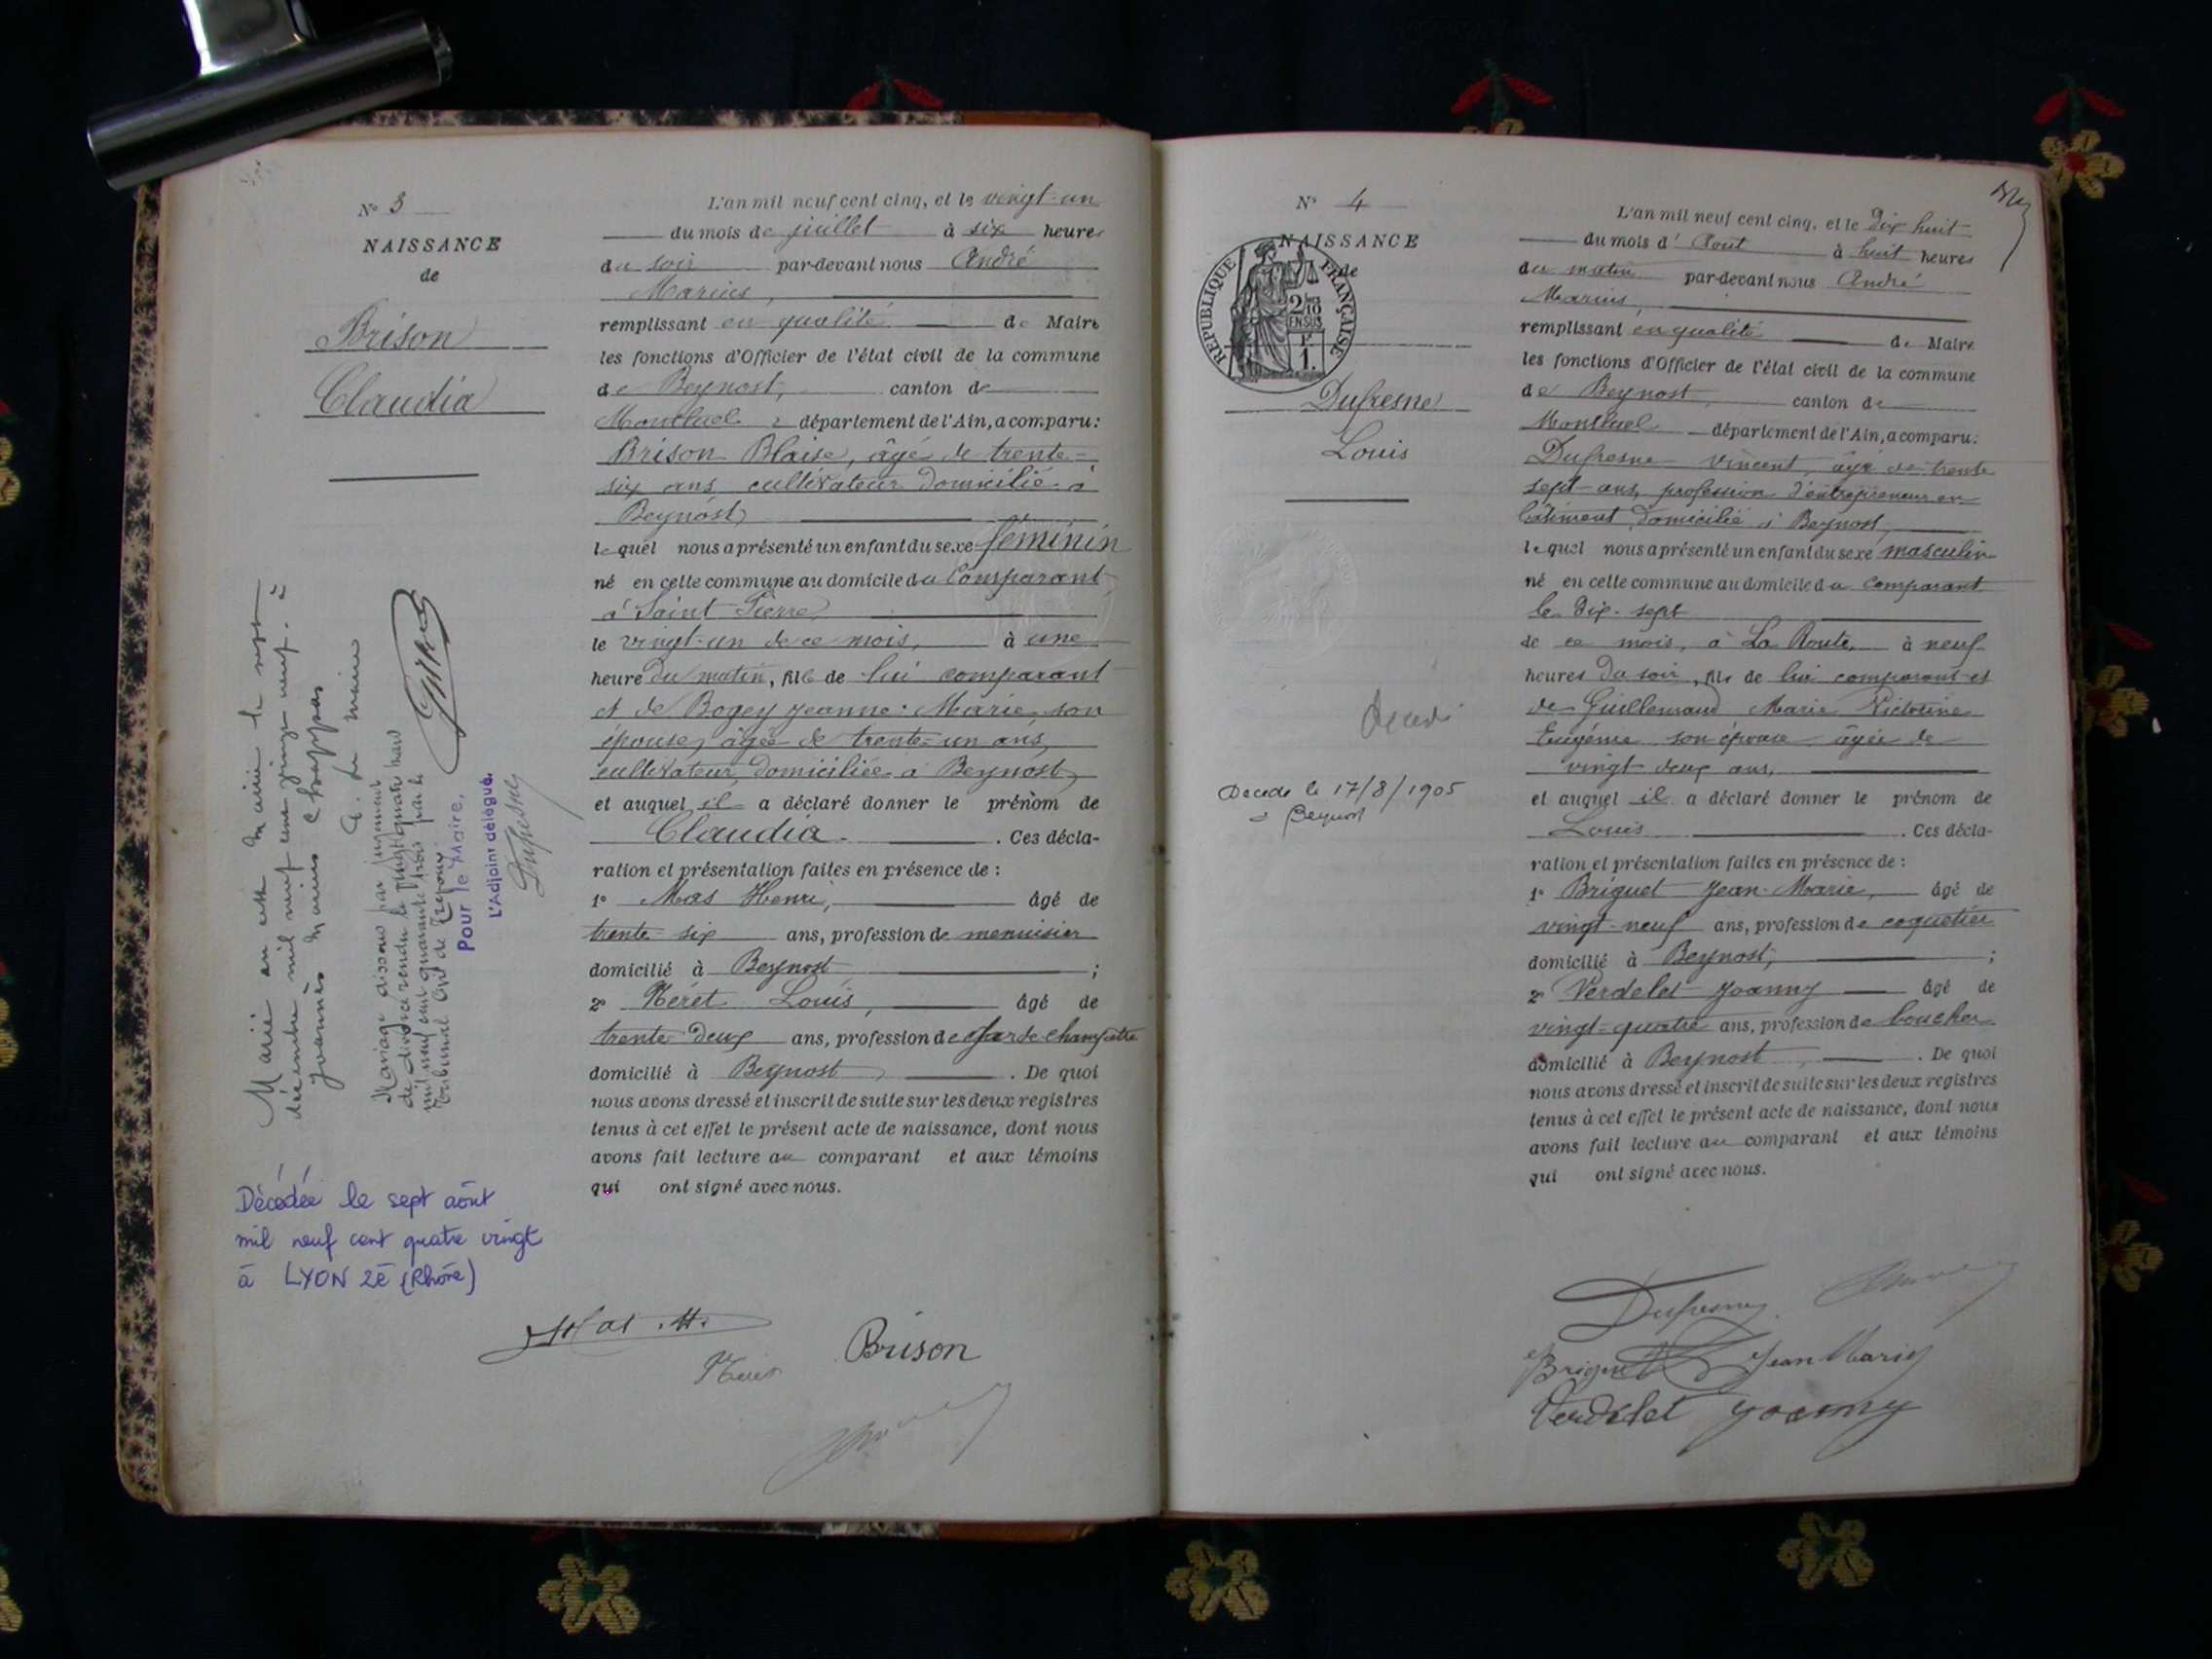 N° 3
NAISSANCE
de
Brison
Claudia
L'an mil neuf cent cinq, et le vingt-un
du mois de juillet à six heures
du soir par-devant nous André
Marius,
remplissant en qualité de Maire
les fonctions d'Officier de l'état civil de la commune
de Beynost, canton de
Montluel département de l'Ain, a comparu:
Brison Blaise, âgé de trente-
six ans, cultivateur domicilié à
Beynost,
lequel nous a présenté un enfant du sexe féminin
né en cette commune au domicile du Comparant
à Saint Pierre,
le vingt-un de ce mois, à une
heure du matin, fille de lui comparant
et de Bogey Jeanne-Marie, son
épouse, âgée de trente-un ans,
cultivateur, domiciliée à Beynost,
et auquel il a déclaré donner le prénom de
Claudia. Ces décla-
ration et présentation faites en présence de :
1° Mas Henri, âgé de
trente-six ans, profession de menuisier
domicilié à Beynost ;
2° Néret Louis, âgé de
trente-deux ans, profession de garde champêtre
domicilié à Beynost, . De quoi
nous avons dressé et inscrit de suite sur les deux registres
tenus à cet effet le présent acte de naissance, dont nous
avons fait lecture au comparant et aux témoins
qui ont signé avec nous.
Mas . H.
Brison
Marié en cette mairie le
décembre mil neuf cent vingt neuf à
Joannès Marius Chappas
Le Maire
Mariage dissous par jugement
de divorce rendu le vingt quatre
mil neuf cent quarante trois par le
Tribunal Civil de Trévoux
Pour le Maire,
L'Adjoint délégué.
Dufresne
Décédée le sept août
mil neuf cent quatre vingt
à LYON 2è (Rhône)
N° 4
NAISSANCE
de
RÉPUBLIQUE FRANÇAISE
2/10 EN SUS
1.
Dufresne
Louis
décédé
Décédé le 17/8/1905
à Beynost
L'an mil neuf cent cinq, et le Dix huit
du mois d'Aout à huit heures
du matin par-devant nous André
Marius,
remplissant en qualité de Maire
les fonctions d'Officier de l'état civil de la commune
de Beynost, canton de
Montluel département de l'Ain, a comparu:
Dufresne Vincent, âgé de trente
sept ans, profession d'entrepreneur en
bâtiment, domicilié à Beynost,
lequel nous a présenté un enfant du sexe masculin
né en cette commune au domicile du comparant
le dix-sept
de ce mois, à La Route, à neuf
heures du soir, fils de lui comparant et
de Guillemaud Marie Victorine
Eugénie son épouse âgée de
vingt deux ans,
et auquel il a déclaré donner le prénom de
Louis . Ces décla-
ration et présentation faites en présence de :
1° Briguet Jean-Marie, âgé de
vingt-neuf ans, profession de coquetier
domicilié à Beynost, ;
2° Verdelet Joanny âgé de
vingt-quatre ans, profession de boucher
domicilié à Beynost, . De quoi
nous avons dressé et inscrit de suite sur les deux registres
tenus à cet effet le présent acte de naissance, dont nous
avons fait lecture au comparant et aux témoins
qui ont signé avec nous.
Dufresne
Briguet Jean Marie
Verdelet Joanny